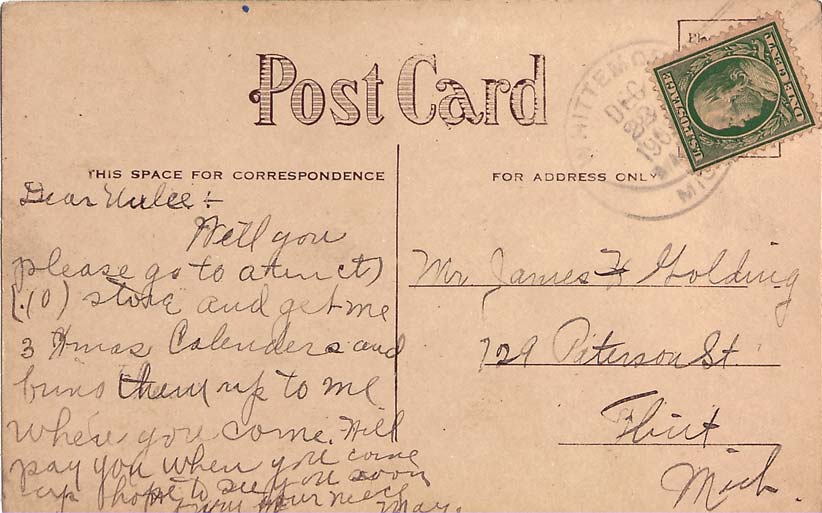 Post Card
THIS SPACE FOR CORRESPONDENCE
FOR ADDRESS ONLY
WHITTEMO
DEC
MICH
U.S. POSTAGE
ONE CENT
Dear Unlee :-
Will you
please go to a ten ct)
(.10) store and get me
3 Xmas Calenders and
bring them up to me
when you come. Will
pay you when you come
up hope to see you soon
from your niece
May.
Mr James H Golding
729 Peterson St.
Flint
Mich.